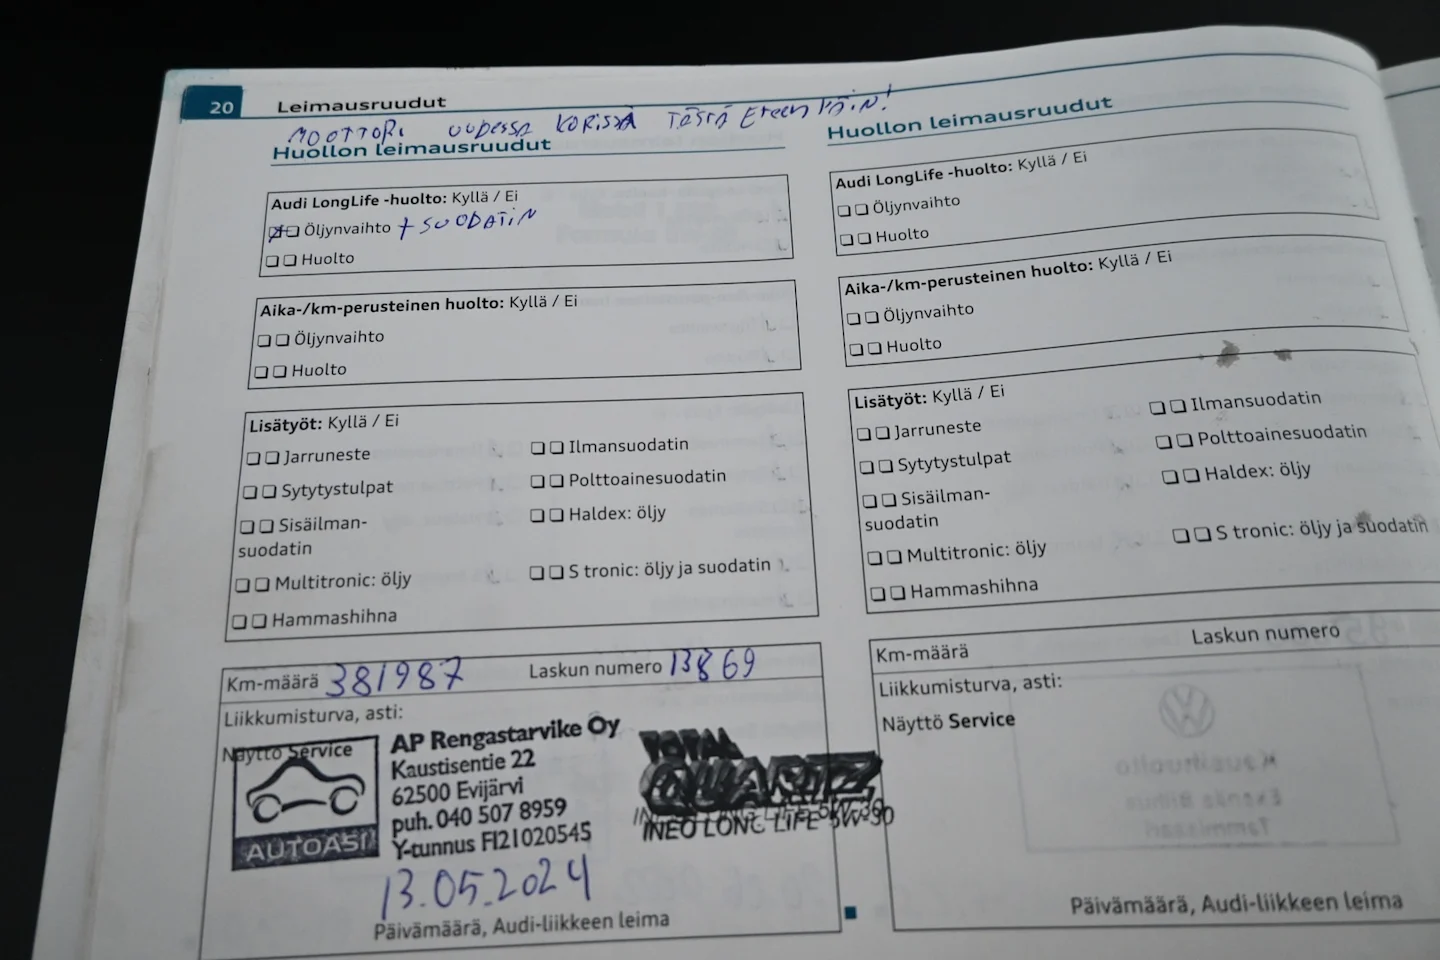 20 Leimausruudut
MOOTTORI UUDESSA KORISSA TÄSTÄ EteenPÄIN!
Huollon leimausruudut
Audi LongLife -huolto: Kyllä / Ei
Öljynvaihto + SUODATIN
Huolto
Aika-/km-perusteinen huolto: Kyllä / Ei
Öljynvaihto
Huolto
Lisätyöt: Kyllä / Ei
Jarruneste
Ilmansuodatin
Sytytystulpat
Polttoainesuodatin
Sisäilman-
suodatin
Haldex: öljy
Multitronic: öljy
S tronic: öljy ja suodatin
Hammashihna
Km-määrä 381987
Laskun numero 13869
Liikkumisturva, asti:
Näyttö Service
AUTOASI
AP Rengastarvike Oy
Kaustisentie 22
62500 Evijärvi
puh. 040 507 8959
Y-tunnus FI21020545
TOTAL
QUARTZ
INEO LONG LIFE 5W-30
13.05.2024
Päivämäärä, Audi-liikkeen leima
Huollon leimausruudut
Audi LongLife -huolto: Kyllä / Ei
Öljynvaihto
Huolto
Aika-/km-perusteinen huolto: Kyllä / Ei
Öljynvaihto
Huolto
Lisätyöt: Kyllä / Ei
Jarruneste
Ilmansuodatin
Sytytystulpat
Polttoainesuodatin
Sisäilman-
suodatin
Haldex: öljy
Multitronic: öljy
S tronic: öljy ja suodatin
Hammashihna
Km-määrä
Laskun numero
Liikkumisturva, asti:
Näyttö Service
Päivämäärä, Audi-liikkeen leima